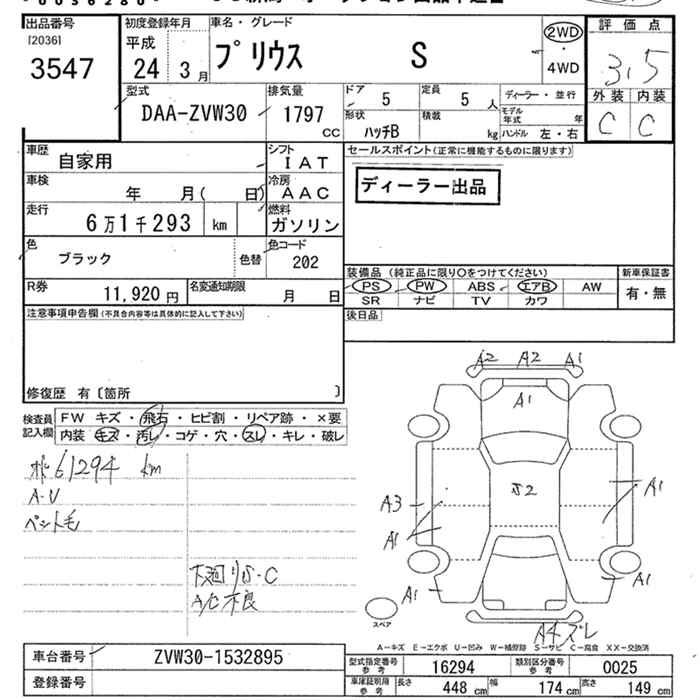 出品番号 初度登録年月 車名・グレード 評価点
[2036]
3547
平成
24 3月
プリウス S
2WD
・
4WD
3.5
外装 内装
C C
型式 排気量 ドア 定員 ディーラー・並行
DAA-ZVW30 1797 CC 5 5人
形状 積載 モデル年式 年
ハッチB kg ハンドル 左・右
車歴 自家用 シフト IAT
セールスポイント(正常に機能するものに限ります)
車検 年 月( 日) 冷房 AAC
ディーラー出品
走行 6万1千293 km 燃料 ガソリン
色 ブラック 色替 色コード 202
装備品(純正品に限り○をつけてください) 新車保証書
PS PW ABS エアB AW 有・無
SR ナビ TV カワ
R券 11,920円 名変通知期限 月 日
注意事項申告欄(不具合内容等は具体的に記入して下さい) 後日品
修復歴 有〔箇所 〕
検査員記入欄
FW キズ・飛石・ヒビ割・リペア跡・×要
内装 キズ・汚レ・コゲ・穴・スレ・キレ・破レ
61294 km
A-U
ペット毛
下廻りS・C
A/C不良
A2 A2 A1
A1
S2
A3
A1
A1
A1
A1
A4ズレ
スペア
A-キズ E-エクボ U-凹み W-補修跡 S-サビ C-腐食 XX-交換済
車台番号 ZVW30-1532895
登録番号
型式指定番号参考 16294 類別区分番号参考 0025
車庫証明用参考 長さ 448cm 幅 174cm 高さ 149cm